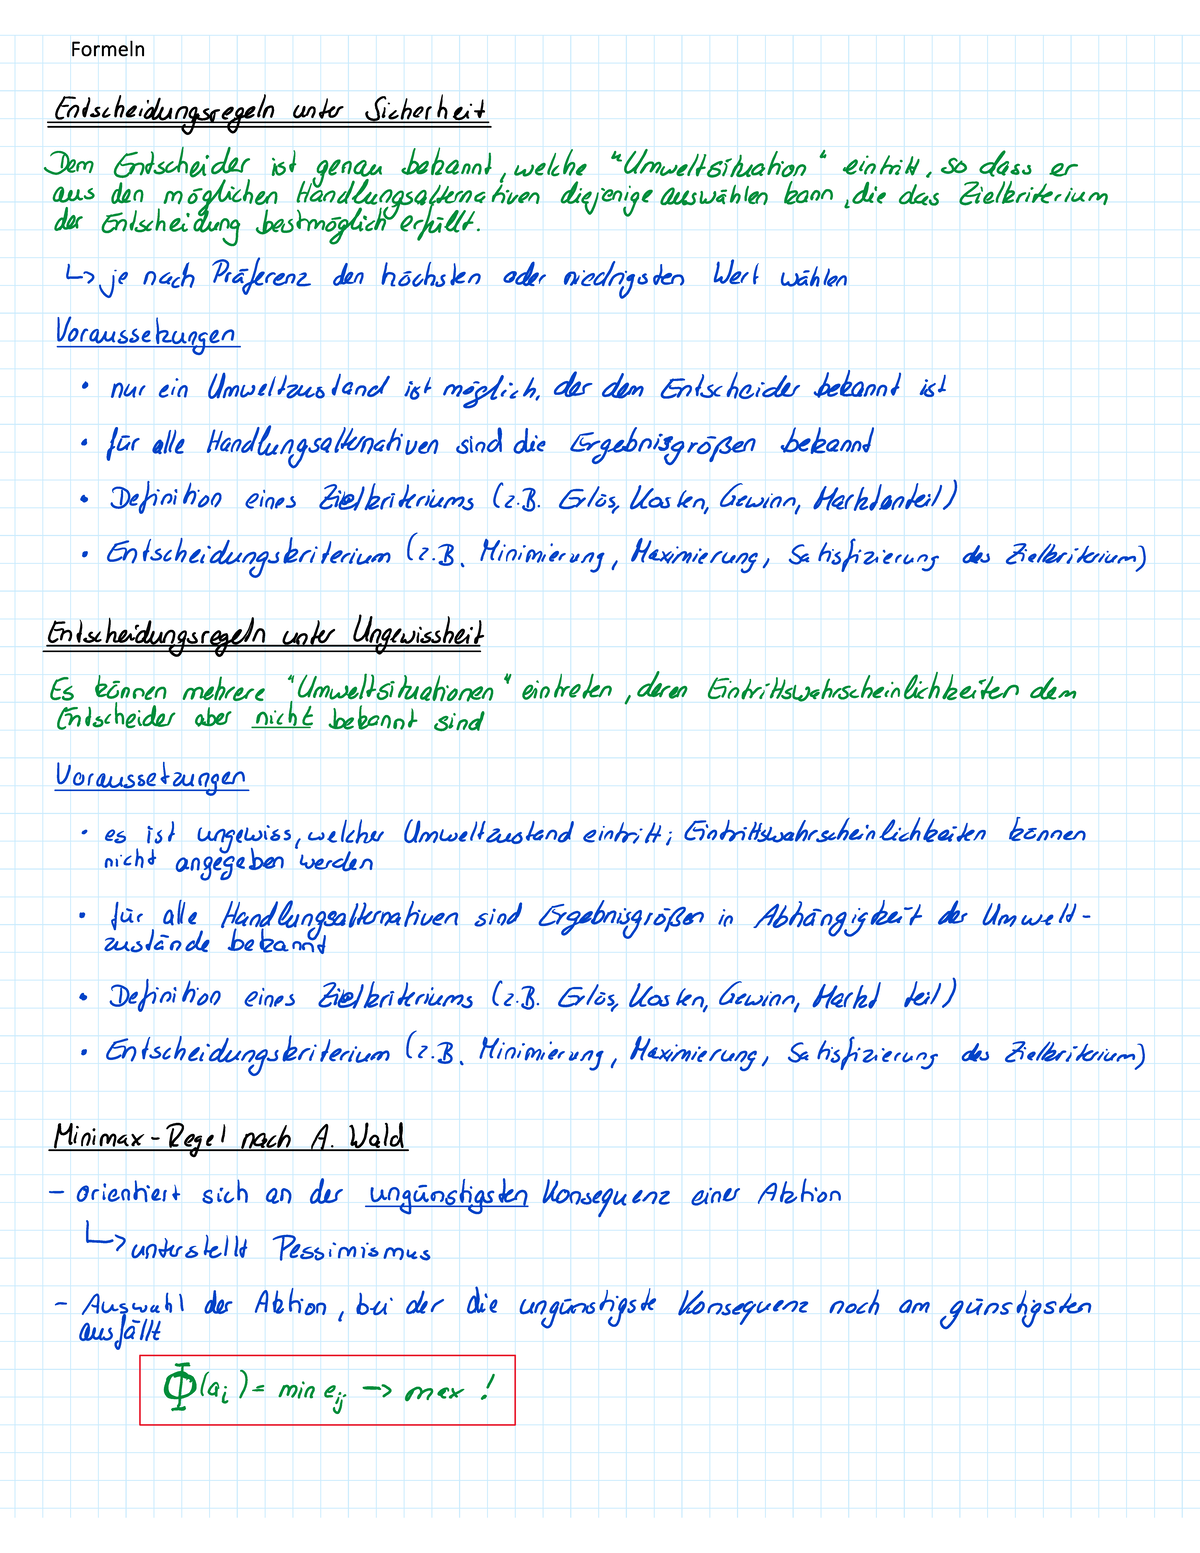 Formeln
Entscheidungsregeln unter Sicherheit
Dem Entscheider ist genau bekannt, welche "Umweltsituation" eintritt, so dass er
aus den möglichen Handlungsalternativen diejenige auswählen kann, die das Zielkriterium
der Entscheidung bestmöglich erfüllt.
↳ je nach Präferenz den höchsten oder niedrigsten Wert wählen
Voraussetzungen
• nur ein Umweltzustand ist möglich, der dem Entscheider bekannt ist
• für alle Handlungsalternativen sind die Ergebnisgrößen bekannt
• Definition eines Zielkriteriums (z.B. Erlös, Kosten, Gewinn, Marktanteil)
• Entscheidungskriterium (z.B. Minimierung, Maximierung, Satisfizierung des Zielkriterium)
Entscheidungsregeln unter Ungewissheit
Es können mehrere "Umweltsituationen" eintreten, deren Eintrittswahrscheinlichkeiten dem
Entscheider aber nicht bekannt sind
Voraussetzungen
• es ist ungewiss, welcher Umweltzustand eintritt; Eintrittswahrscheinlichkeiten können
nicht angegeben werden
• für alle Handlungsalternativen sind Ergebnisgrößen in Abhängigkeit der Umwelt-
zustände bekannt
• Definition eines Zielkriteriums (z.B. Erlös, Kosten, Gewinn, Markt teil)
• Entscheidungskriterium (z.B. Minimierung, Maximierung, Satisfizierung des Zielkriterium)
Minimax-Regel nach A. Wald
- orientiert sich an der ungünstigsten Konsequenz einer Aktion
↳ unterstellt Pessimismus
- Auswahl der Aktion, bei der die ungünstigste Konsequenz noch am günstigsten
ausfällt
Φ(aᵢ) = min eᵢⱼ → max !